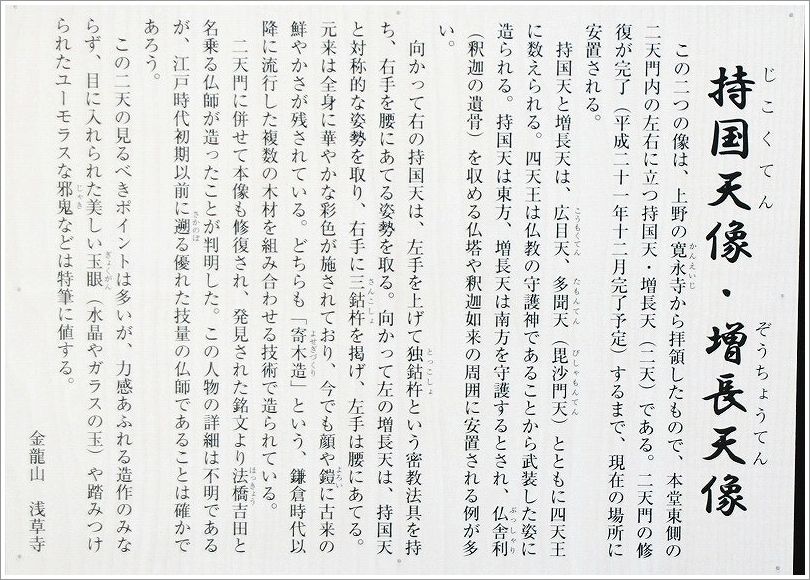 持国天像・増長天像
じこくてん　ぞうちょうてん
この二つの像は、上野の寛永寺から拝領したもので、本堂東側の
かんえいじ
二天門内の左右に立つ持国天・増長天（二天）である。二天門の修
復が完了（平成二十一年十二月完了予定）するまで、現在の場所に
安置される。
持国天と増長天は、広目天、多聞天（毘沙門天）とともに四天王
こうもくてん　たもんてん　びしゃもんてん
に数えられる。四天王は仏教の守護神であることから武装した姿に
造られる。持国天は東方、増長天は南方を守護するとされ、仏舎利
ぶっしゃり
（釈迦の遺骨）を収める仏塔や釈迦如来の周囲に安置される例が多
い。
向かって右の持国天は、左手を上げて独鈷杵という密教法具を持
とっこしょ
ち、右手を腰にあてる姿勢を取る。向かって左の増長天は、持国天
と対称的な姿勢を取り、右手に三鈷杵を掲げ、左手は腰にあてる。
さんこしょ
元来は全身に華やかな彩色が施されており、今でも顔や鎧に古来の
よろい
鮮やかさが残されている。どちらも「寄木造」という、鎌倉時代以
よせぎづくり
降に流行した複数の木材を組み合わせる技術で造られている。
二天門に併せて本像も修復され、発見された銘文より法橋吉田と
ほっきょう
名乗る仏師が造ったことが判明した。この人物の詳細は不明である
が、江戸時代初期以前に遡る優れた技量の仏師であることは確かで
さかのぼ
あろう。
この二天の見るべきポイントは多いが、力感あふれる造作のみな
らず、目に入れられた美しい玉眼（水晶やガラスの玉）や踏みつけ
ぎょくがん
られたユーモラスな邪鬼などは特筆に値する。
じゃき
金龍山　浅草寺